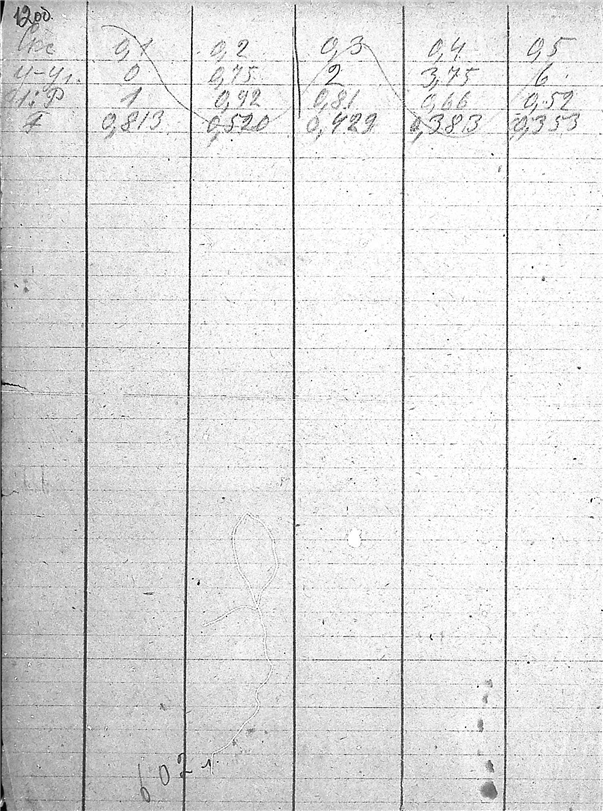 1200.
0,1 0,2 0,3 0,4 0,5
0 0,75 2 3,75 6
1 0,92 0,81 0,66 0,52
0,813 0,520 0,429 0,383 0,353
602 1.